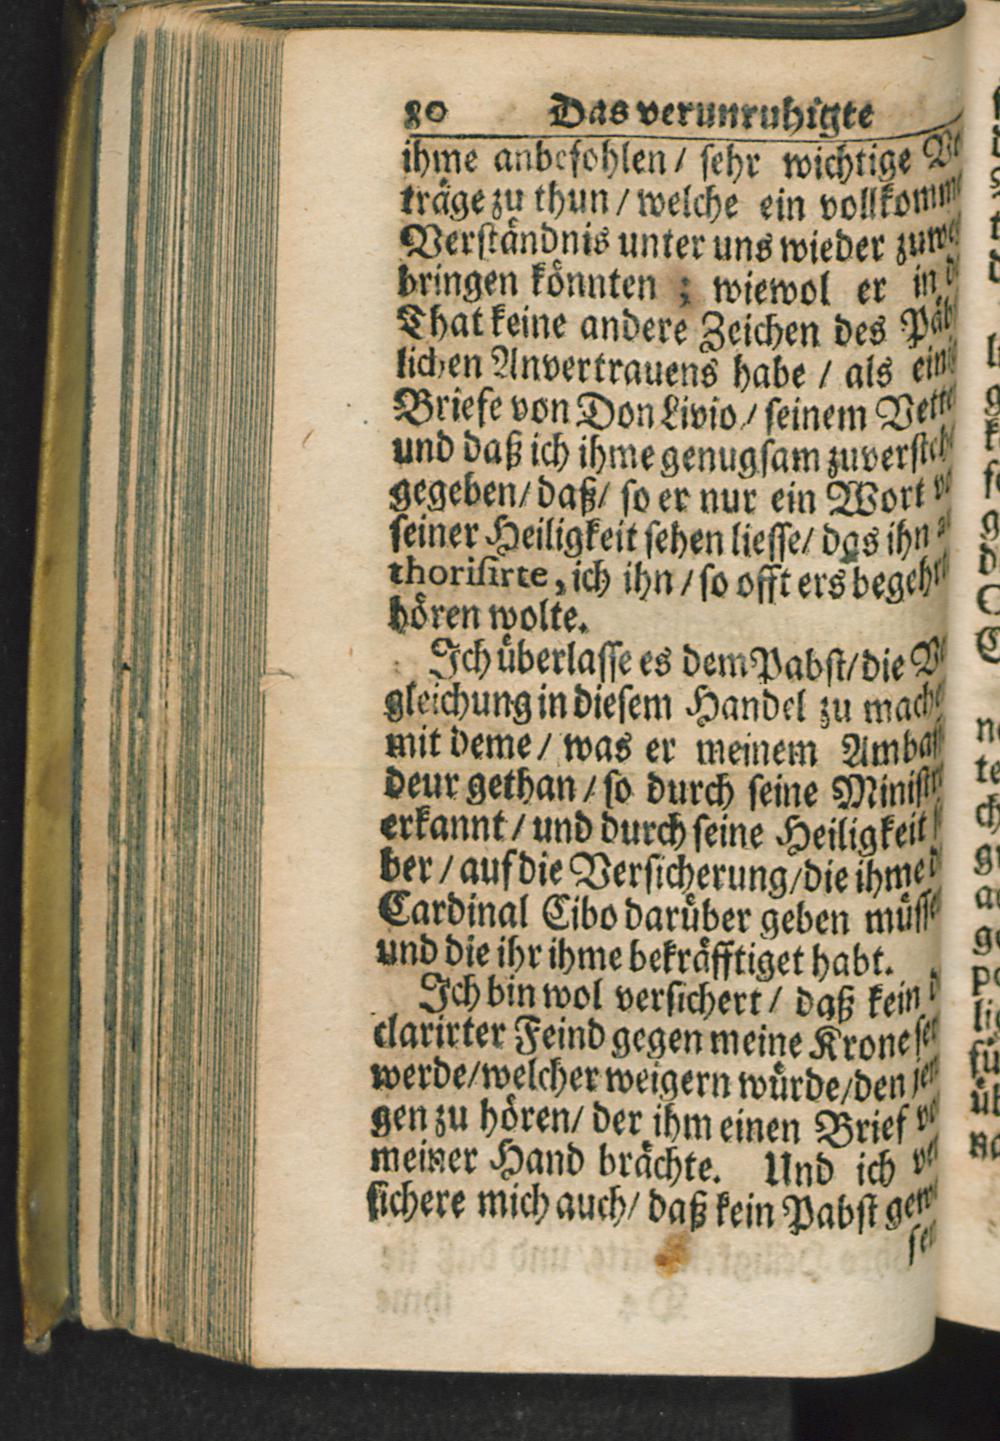 80 Das verunruhigte
ihme anbefohlen / sehr wichtige
träge zu thun / welche ein
Verständnis unter uns wieder
bringen könnten ; wiewol er in
That keine andere Zeichen des
lichen Anvertrauens habe / als
Briefe von Don Livio / seinem
und daß ich ihme genugsam
gegeben / daß / so er nur ein Wort
seiner Heiligkeit sehen liesse / das ihn
thorisirte, ich ihn / so offt ers
hören wolte.
Ich überlasse es dem Pabst / die
gleichung in diesem Handel zu
mit deme / was er meinem
deur gethan / so durch seine
erkannt / und durch seine Heiligkeit
ber / auf die Versicherung / die ihme
Cardinal Cibo darüber geben
und die ihr ihme bekräfftiget habt.
Ich bin wol versichert / daß kein
clarirter Feind gegen meine Krone
werde / welcher weigern würde / den
gen zu hören / der ihm einen Brief
meiner Hand brächte. Und ich
sichere mich auch / daß kein Pabst